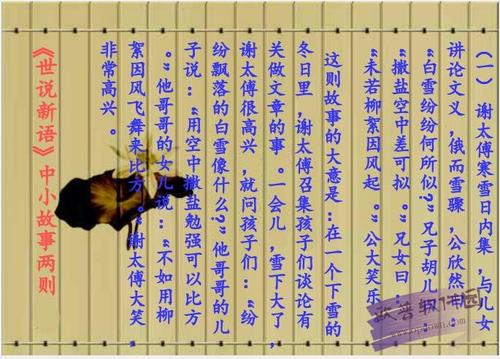 (一) 谢太傅寒雪日内集，与儿女
讲论文义，俄而雪骤，公欣然
“白雪纷纷何所似?”兄子胡儿
“撒盐空中差可拟。”兄女曰：
“未若柳絮因风起。”公大笑乐
这则故事的大意是：在一个下雪的
冬日里，谢太傅召集孩子们谈论有
关做文章的事。一会儿，雪下大了，
谢太傅很高兴，就问孩子们：“纷
纷飘落的白雪像什么?”他哥哥的儿
子说：“用空中撒盐勉强可以比方
。”他哥哥的女儿说：“不如用柳
絮因风飞舞来比方。”谢太傅大笑，
非常高兴。
《世说新语》中小故事两则